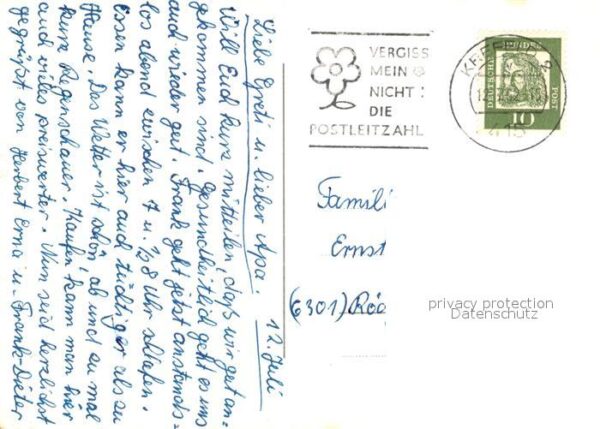 Liebe Greti u. lieber Apa. 12. Juli
Will Euch kurz mitteilen, daß wir gut an-
gekommen sind. Gesundheitlich geht es uns
auch wieder gut. Frank geht jetzt anstands-
los abend zwischen 7 u. 1/2 8 Uhr schlafen.
Essen kann er hier auch tüchtiger als zu
Hause. Das Wetter ist schön, ab und zu mal
kurze Regenschauer. Kaufen kann man hier
auch vieles preiswerter. Nun seid herzlichst
gegrüßt von Herbert Erna u. Frank-Dieter
VERGISS
MEIN
NICHT:
DIE
POSTLEITZAHL
KREFELD 2
415
DEUTSCHE BUNDESPOST
10
Famili
Ernst
(6301) Röd
privacy protection
Datenschutz